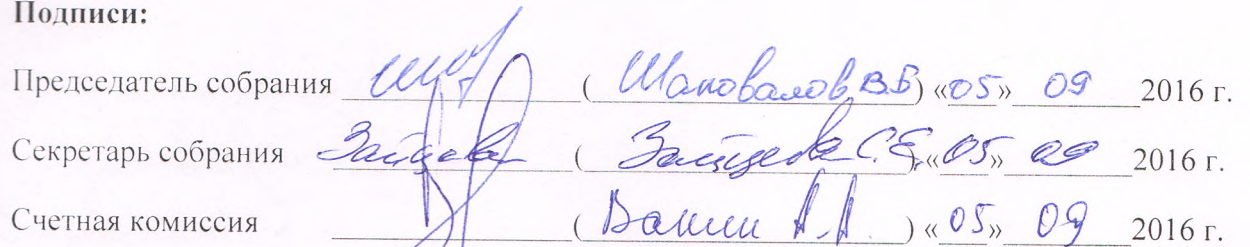 Подписи:
Председатель собрания ( Шаповалов В.Б ) «05» 09 2016 г.
Секретарь собрания Зайцева ( Зайцева С.Е. ) «05» 09 2016 г.
Счетная комиссия ( А.А. ) «05» 09 2016 г.